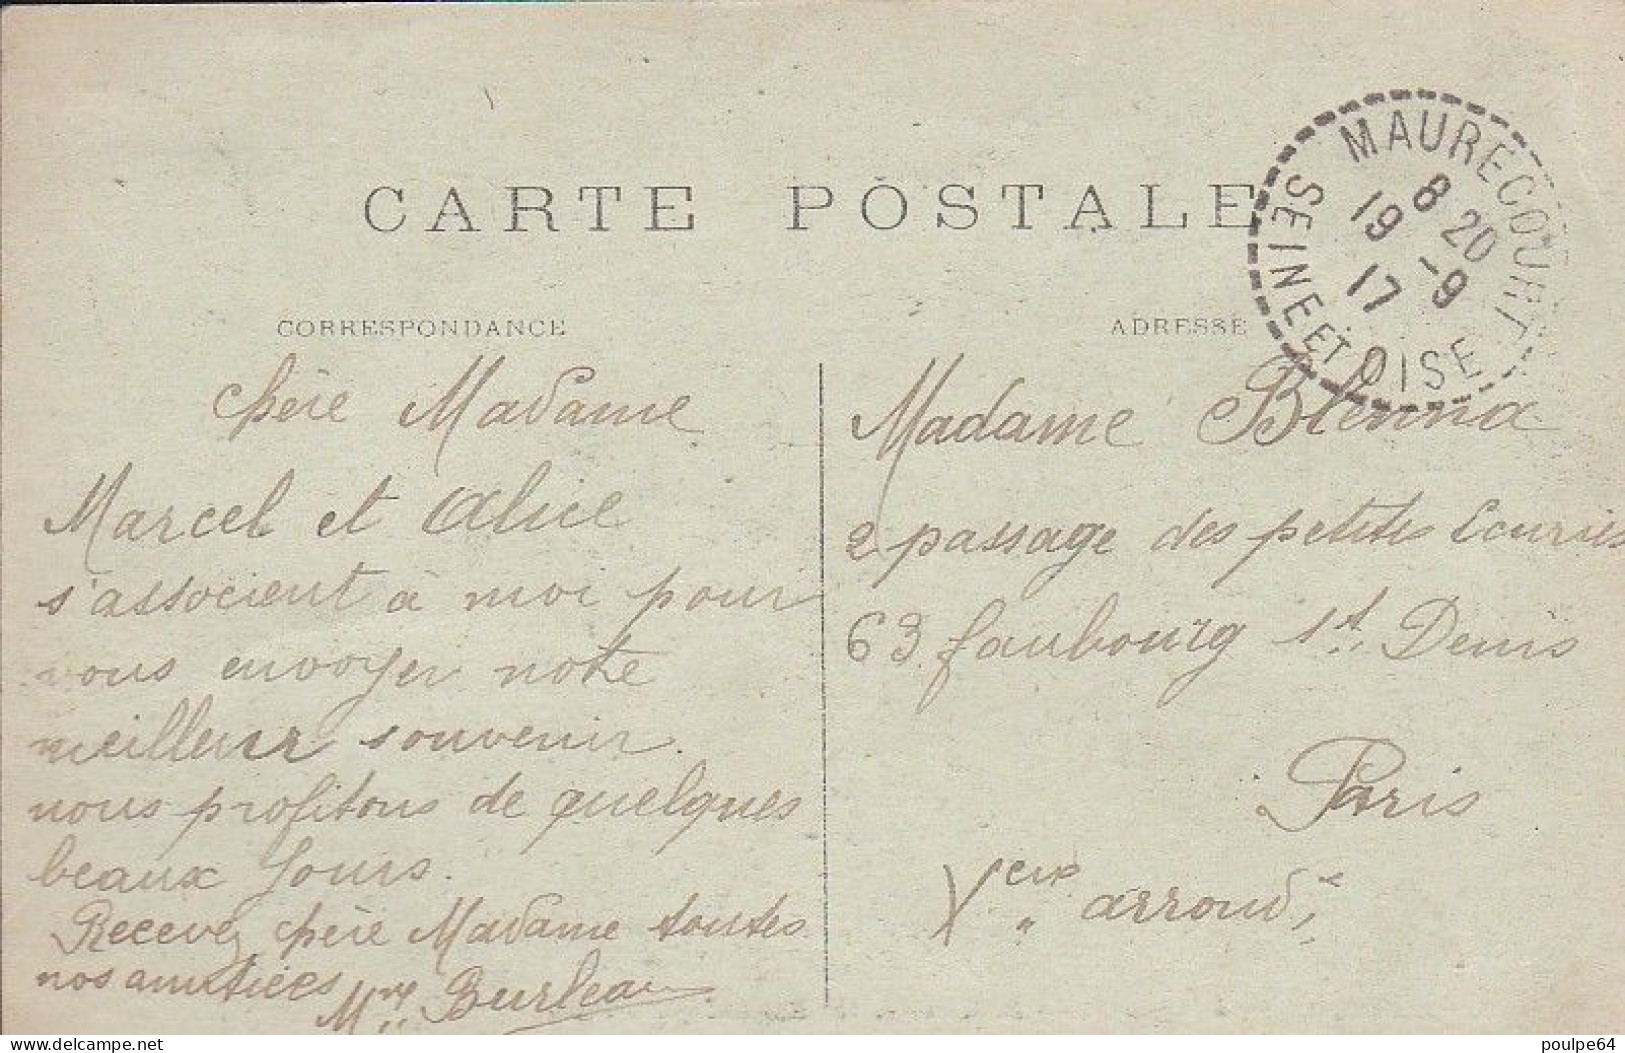 CARTE POSTALE
MAURECOURT
8 20
19 -9
17
SEINE ET OISE
CORRESPONDANCE
chère Madame
Marcel et Alice
s'associent à moi pour
vous envoyer notre
meilleur souvenir.
nous profitons de quelques
beaux jours.
Recevez chère Madame toutes
nos amitiées
Mme Burleau
ADRESSE
Madame
2 passage des petites Ecuries
63 faubourg St. Denis
Paris
Xeme arrond
delcampe.net
poulpe64